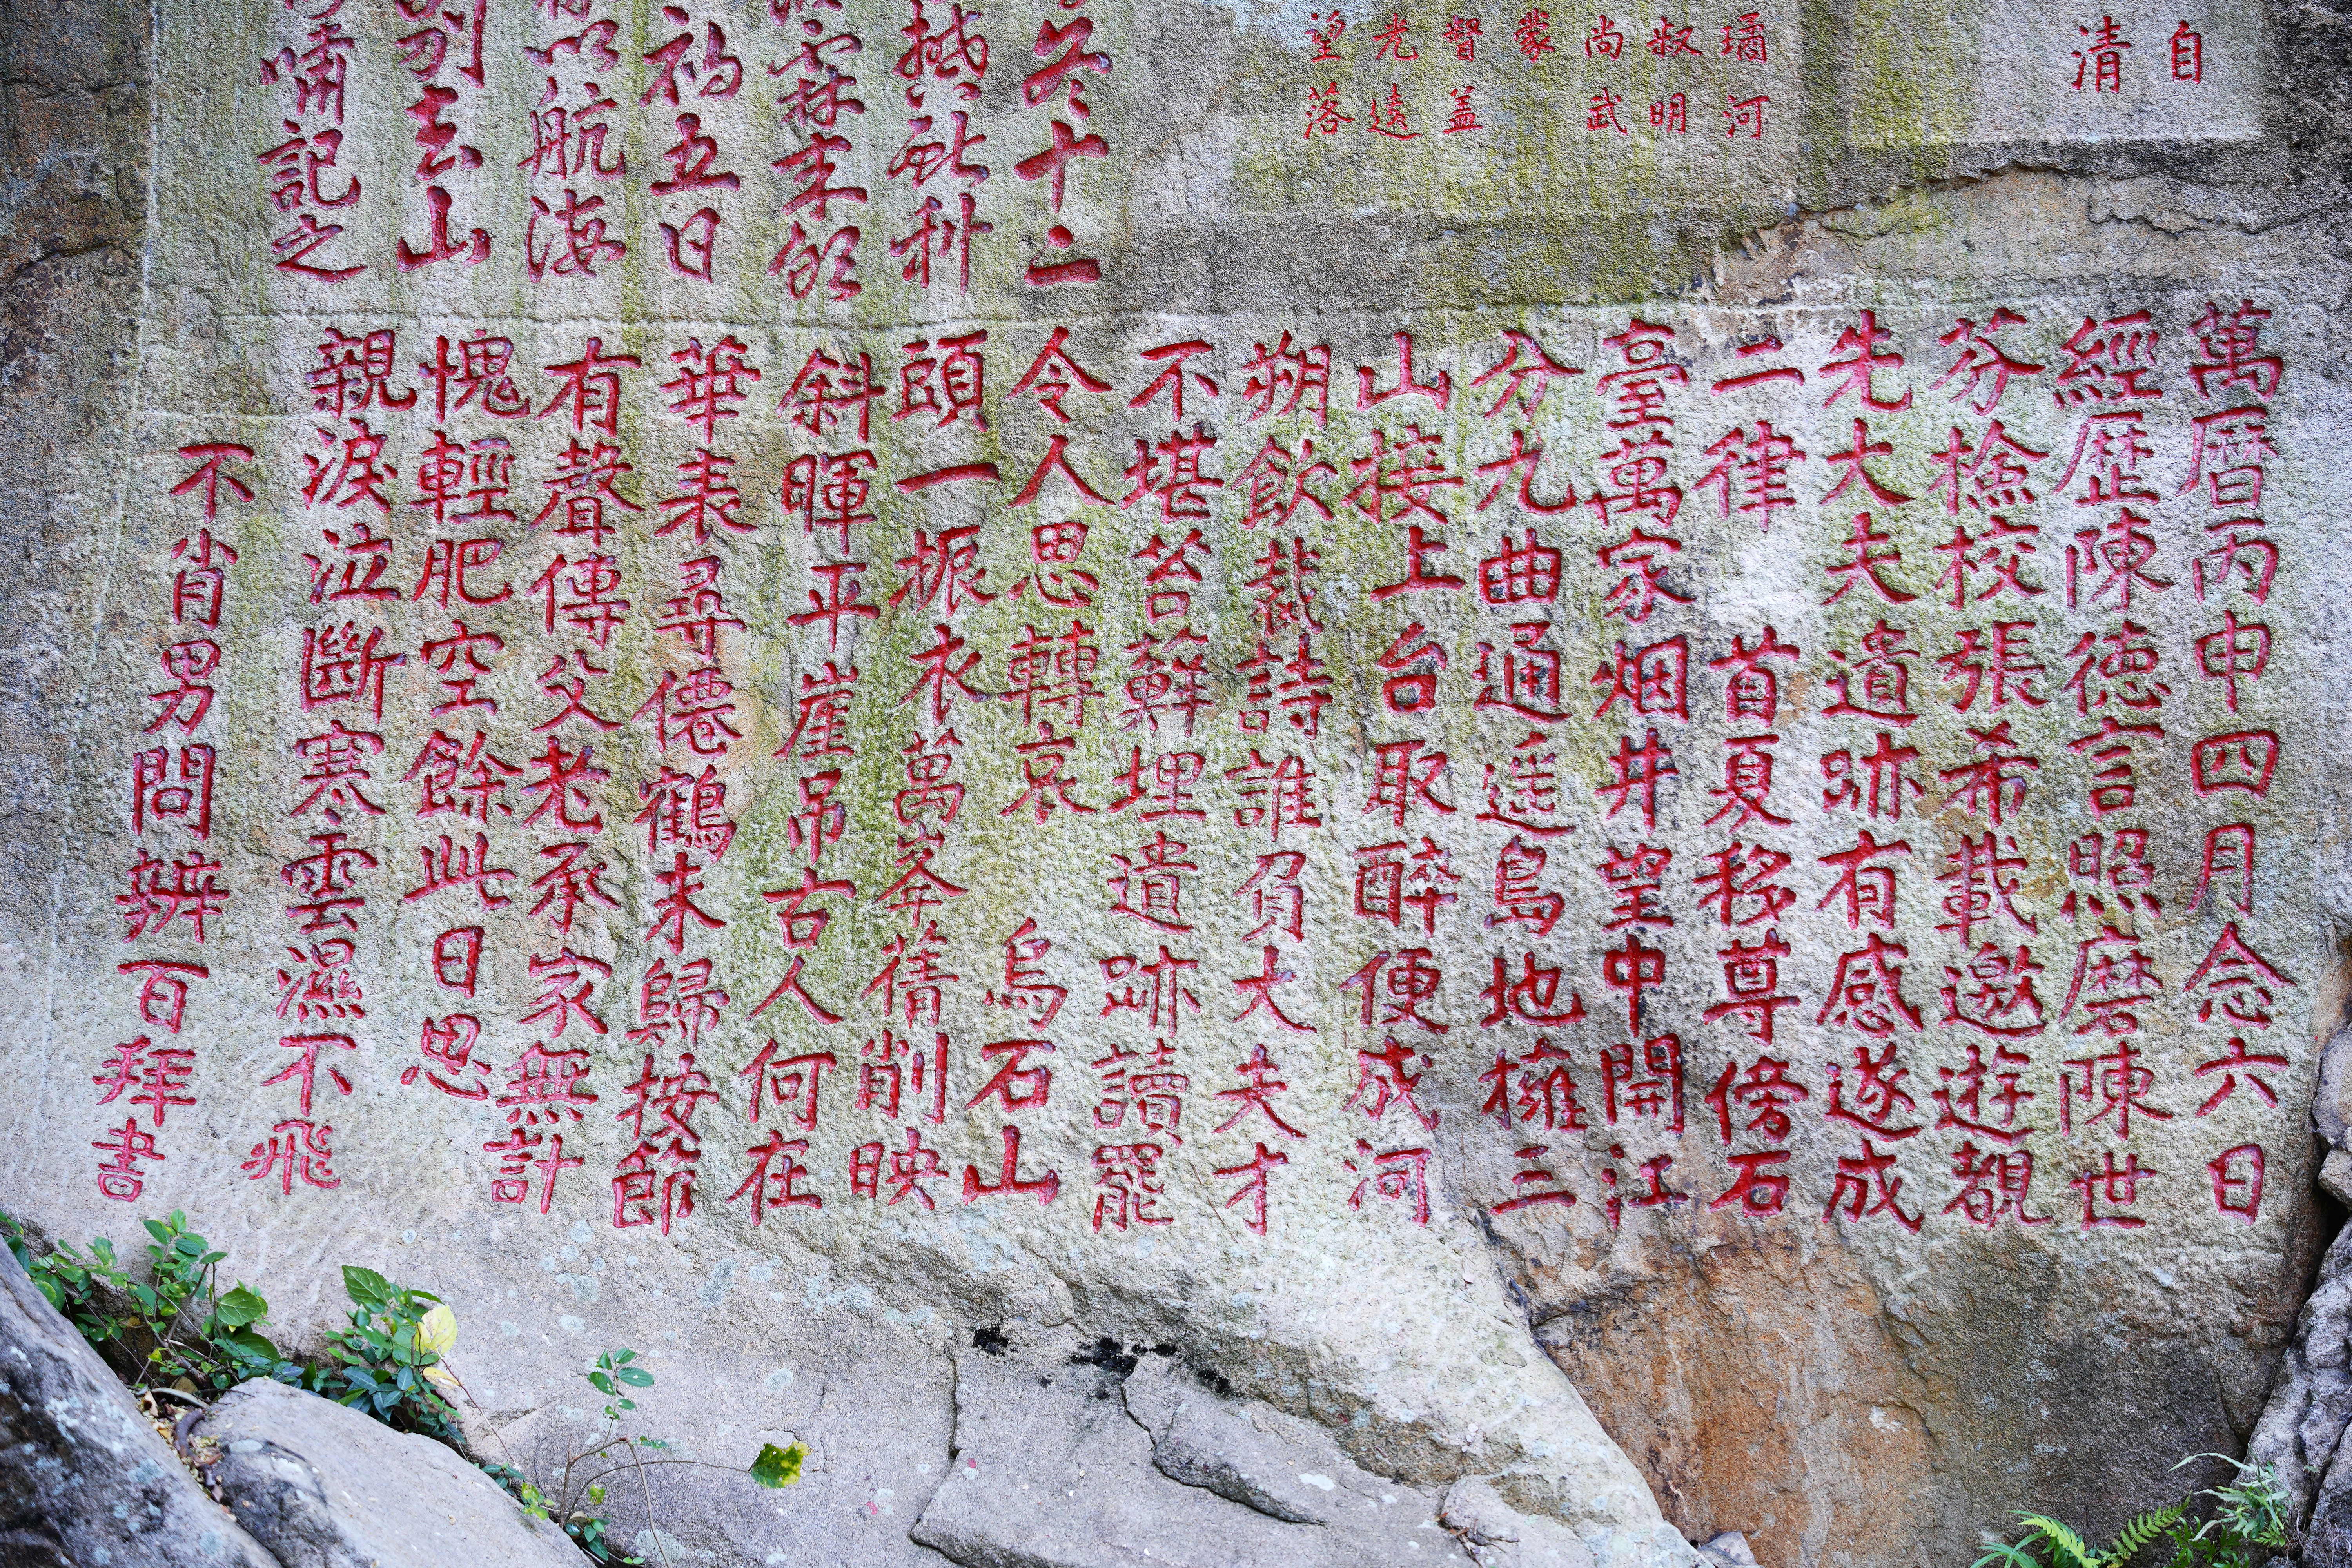 自
清
璚河
叔明
尚武
蒙
督盖
光遠
望落
冬十二
撼 科
霖
禍五日
航海
去山
嘯記之
萬曆丙申四月念六日
經歷陳德言照磨陳世
芬撿校張希載邀遊覩
先大夫遺跡有感遂成
二律 首夏移尊傍石
臺萬家烟井望中開江
分九曲通遥島地擁三
山接上台取醉便成河
朔飲裁詩誰負大夫才
不堪苔蘚埋遺跡讀罷
令人思轉哀 烏石山
頭一振衣萬峯蒨削映
斜暉平崖吊古人何在
華表尋僊鶴未歸按節
有聲傳父老承家無計
愧輕肥空餘此日思
親淚泣斷寒雲濕不飛
不肖男問辨百拜書